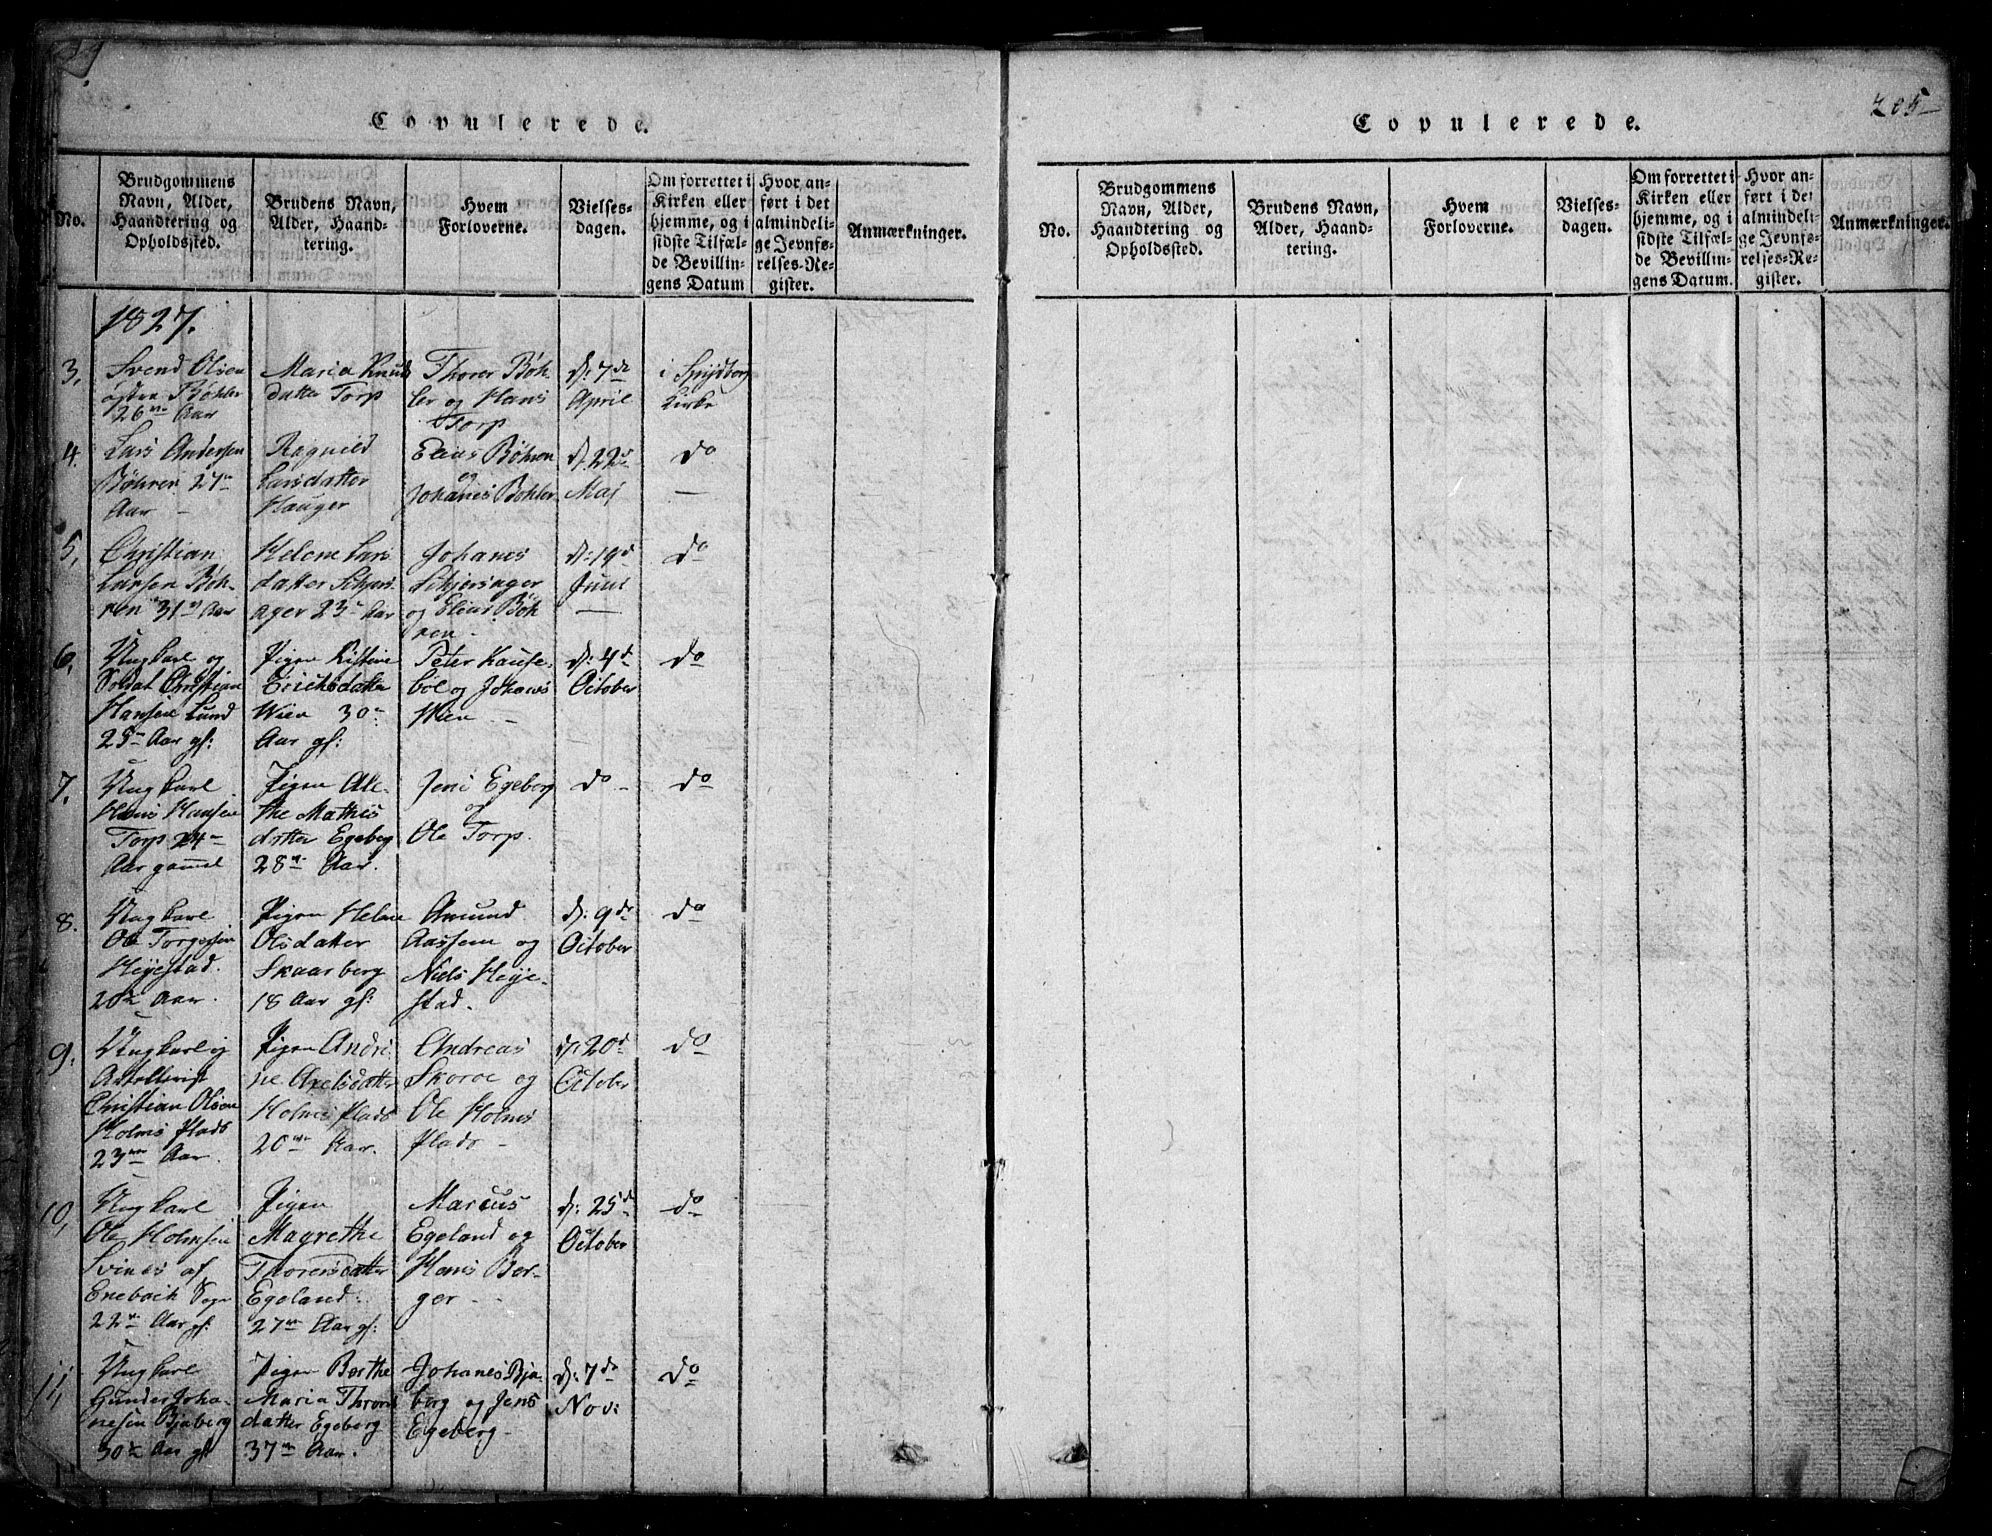 Copulerede.
No.
Brudgommens
Navn, Alder,
Haandtering og
Opholdssted.
Brudens Navn,
Alder, Haand-
tering.
Hvem
Forloverne.
Vielses-
dagen.
Om forrettet i
Kirken eller
hjemme, og i
sidste Tilfæl-
de Bevillin-
gens Datum
Hvor an-
ført i det
almindeli-
ge Jevnfø-
relses-Re-
gister.
Anmærkninger.
1827.
3,
Svend Olsen
østre Bøhler
26 Aar
Maria Knuds
datter Torp
Thorer Bøh-
ler og Hans
Torp
d: 7de
April
i Spydberg
Kirke
4.
Lars Andersen
Bøhren 27
Aar -
Ragnild
Larsdatter
Hauger
Elias Bøhren
og
Johanes Bøhler
d, 22d
Maj
do
5,
Christian
Larsen Bøh-
ren 31 Aar
Helene Lars
datter Schjers-
ager 23 Aar
Johanes
Schjersager
og Elias Bøh
ren -
d: 19d
Juni
do
6,
Ungkarl og
Soldat Christian
Hansen Lund
25 Aar gl:
Pigen Kistine
Erichsdatter
Wien 30
Aar gl:
Peter Kause-
böl og Johanes
Wien - -
d: 4de
October
do
7,
Ungkarl
Hans Hansen
Torp 24
Aar gamel
Pigen Ale-
the Mathis
datter Egeberg
28 Aar.
Jens Egeberg
og
Ole Torp.
do -
do
8.
Ungkarl
Ole Torgersen
Heyestad.
20 Aar.
Pigen Helene
Olsdatter
Skaarberg
18 Aar gl:
Amund
Aassem og
Niels Heye-
stad.
d: 9de
October
do
9.
Ungkarl og
Artellerist
Christian Olsen
Holms Plads
23 Aar.
Pigen Andri-
ne Axelsdatter
Holms Plads
20 Aar.
Andreas
Skoroe og
Ole Holms
Plads -
d: 20d
October
do
10,
Ungkarl
Ole Holmsen
Svenes af
Eneback Sogn
22 Aar gl:
Pigen
Magrethe
Thorersdatter
Egeland.
27 Aar gl:
Marcus
Egeland og
Hans Ber-
ger - -
d: 25d
October
do
11,
Ungkarl
Gunder Joha-
nesen Bjaberg
30 Aar gl
Pigen Berthe
Maria Thrond
datter Egeberg
37 Aar.
Johanes Bja-
berg og Jens
Egeberg -
d: 7de
Nov:
do
205
Copulerede.
No.
Brudgommens
Navn, Alder,
Haandtering og
Opholdssted.
Brudens Navn,
Alder, Haand-
tering.
Hvem
Forloverne.
Vielses-
dagen.
Om forrettet i
Kirken eller
hjemme, og i
sidste Tilfæl-
de Bevillin-
gens Datum.
Hvor an-
ført i det
almindeli-
ge Jevnfø-
relses-Re-
gister.
Anmærkninger.